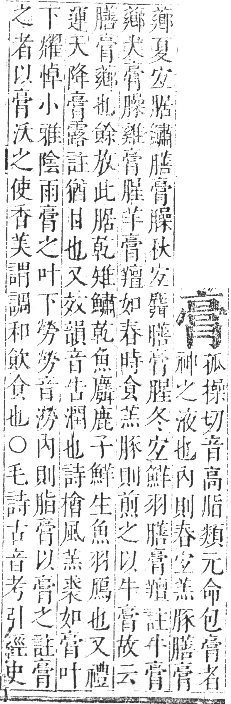 膏
孤操切音高脂類元命包膏者
神之液也內則春宜羔豚膳膏
薌夏宜腒鱐膳膏臊秋宜麛膳膏腥冬宜鮮羽膳膏羶註牛膏
薌犬膏臊雞膏腥羊膏羶如春時食羔豚則煎之以牛膏故云
膳膏薌也餘放此腒乾雉鱐乾魚麛鹿子鮮生魚羽鴈也又禮
運天降膏露註猶甘也又效韻音告潤也詩檜風羔裘如膏叶
下燿悼小雅陰雨膏之叶下勞勞音澇內則脂膏以膏之註膏
之者以膏沃之使香美謂調和飲食也○毛詩古音考引經史